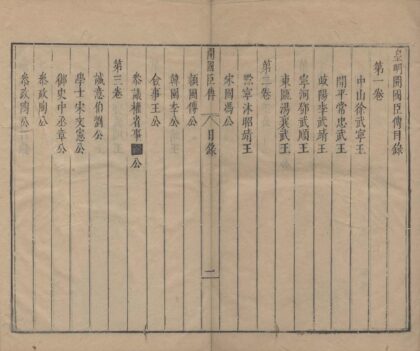 皇明開國臣傳目錄
第一卷
中山徐武寧王
開平常忠武王
岐陽李武靖王
寧河鄧武順王
東甌湯襄武王
第二卷
黔寧沐昭靖王
宋國馮公
開國臣傳
目錄
二
潁國傅公
韓國李公
僉事王公
參議權省事公
第三卷
誠意伯劉公
學士宋文憲公
御史中丞章公
參政陶公
參政陶公